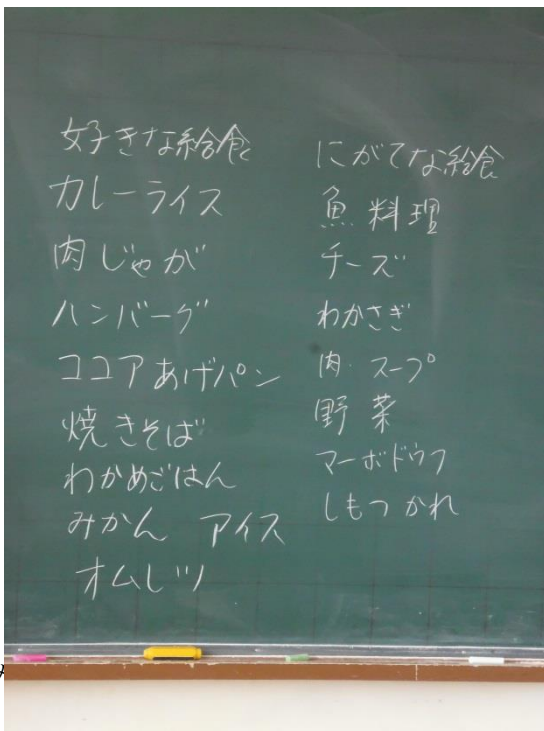 好きな給食
カレーライス
肉じゃが
ハンバーグ
ココアあげパン
焼きそば
わかめごはん
みかん アイス
オムレツ
にがてな給食
魚料理
チーズ
わかさぎ
肉・スープ
野菜
マーボドウフ
しもつかれ